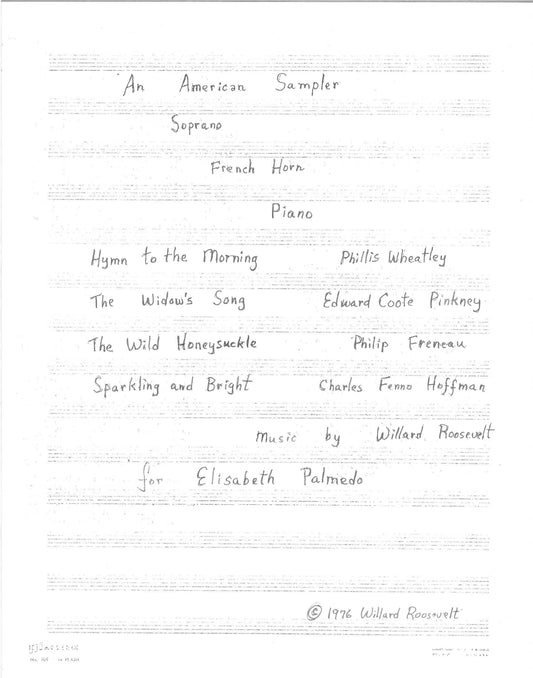 An American Sampler
Soprano
French Horn
Piano
Hymn to the Morning Phillis Wheatley
The Widow's Song Edward Coote Pinkney
The Wild Honeysuckle Philip Freneau
Sparkling and Bright Charles Fenno Hoffman
Music by Willard Roosevelt
for Elisabeth Palmedo
© 1976 Willard Roosevelt